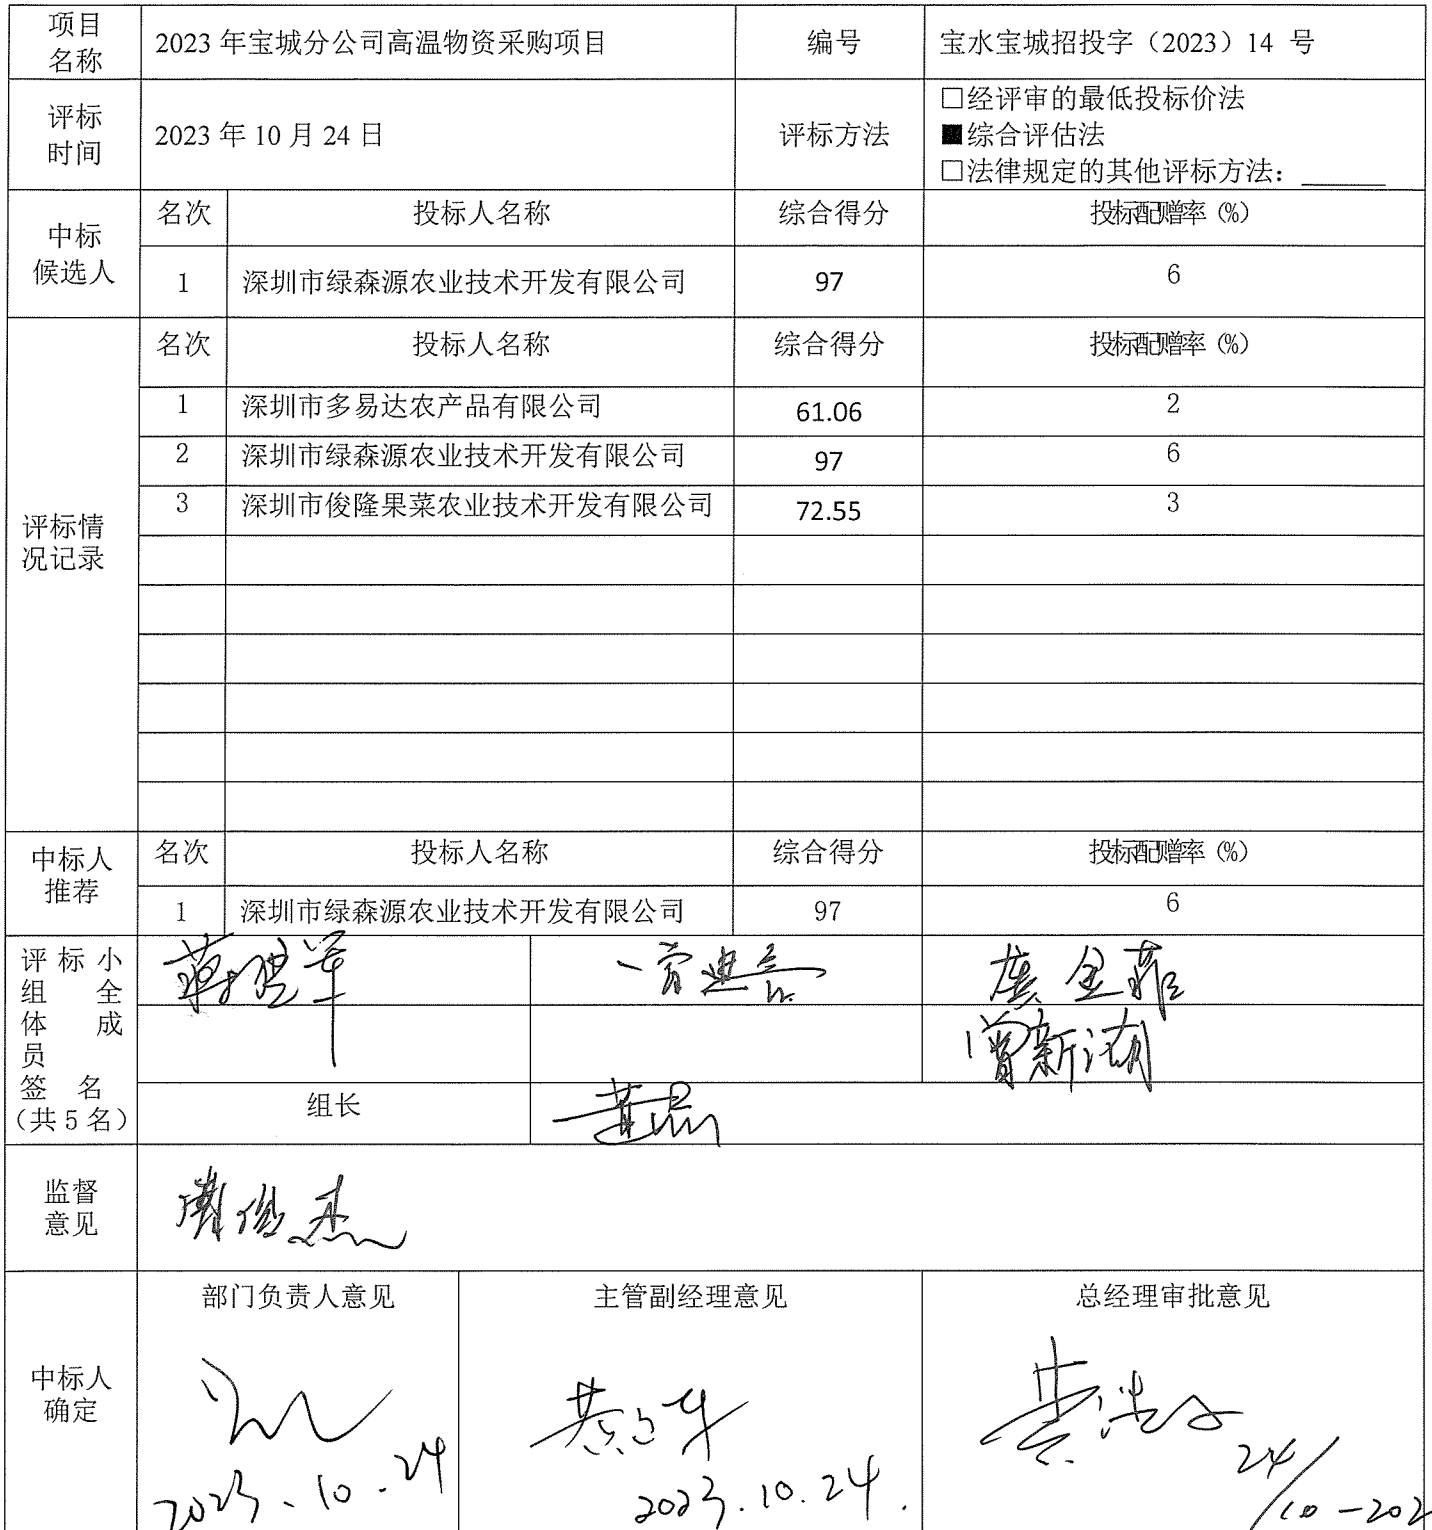 项目
名称
2023 年宝城分公司高温物资采购项目
编号
宝水宝城招投字（2023）14 号
评标
时间
2023 年 10 月 24 日
评标方法
□经评审的最低投标价法
■综合评估法
□法律规定的其他评标方法：______
中标
候选人
名次 投标人名称 综合得分 投标配赠率（%）
1 深圳市绿森源农业技术开发有限公司 97 6
评标情
况记录
名次 投标人名称 综合得分 投标配赠率（%）
1 深圳市多易达农产品有限公司 61.06 2
2 深圳市绿森源农业技术开发有限公司 97 6
3 深圳市俊隆果菜农业技术开发有限公司 72.55 3
中标人
推荐
名次 投标人名称 综合得分 投标配赠率（%）
1 深圳市绿森源农业技术开发有限公司 97 6
评标小
组 全
体 成
员
签 名
（共 5 名）
曾新
组长
监督
意见
中标人
确定
部门负责人意见
2023.10.24
主管副经理意见
2023.10.24.
总经理审批意见
24/10-202